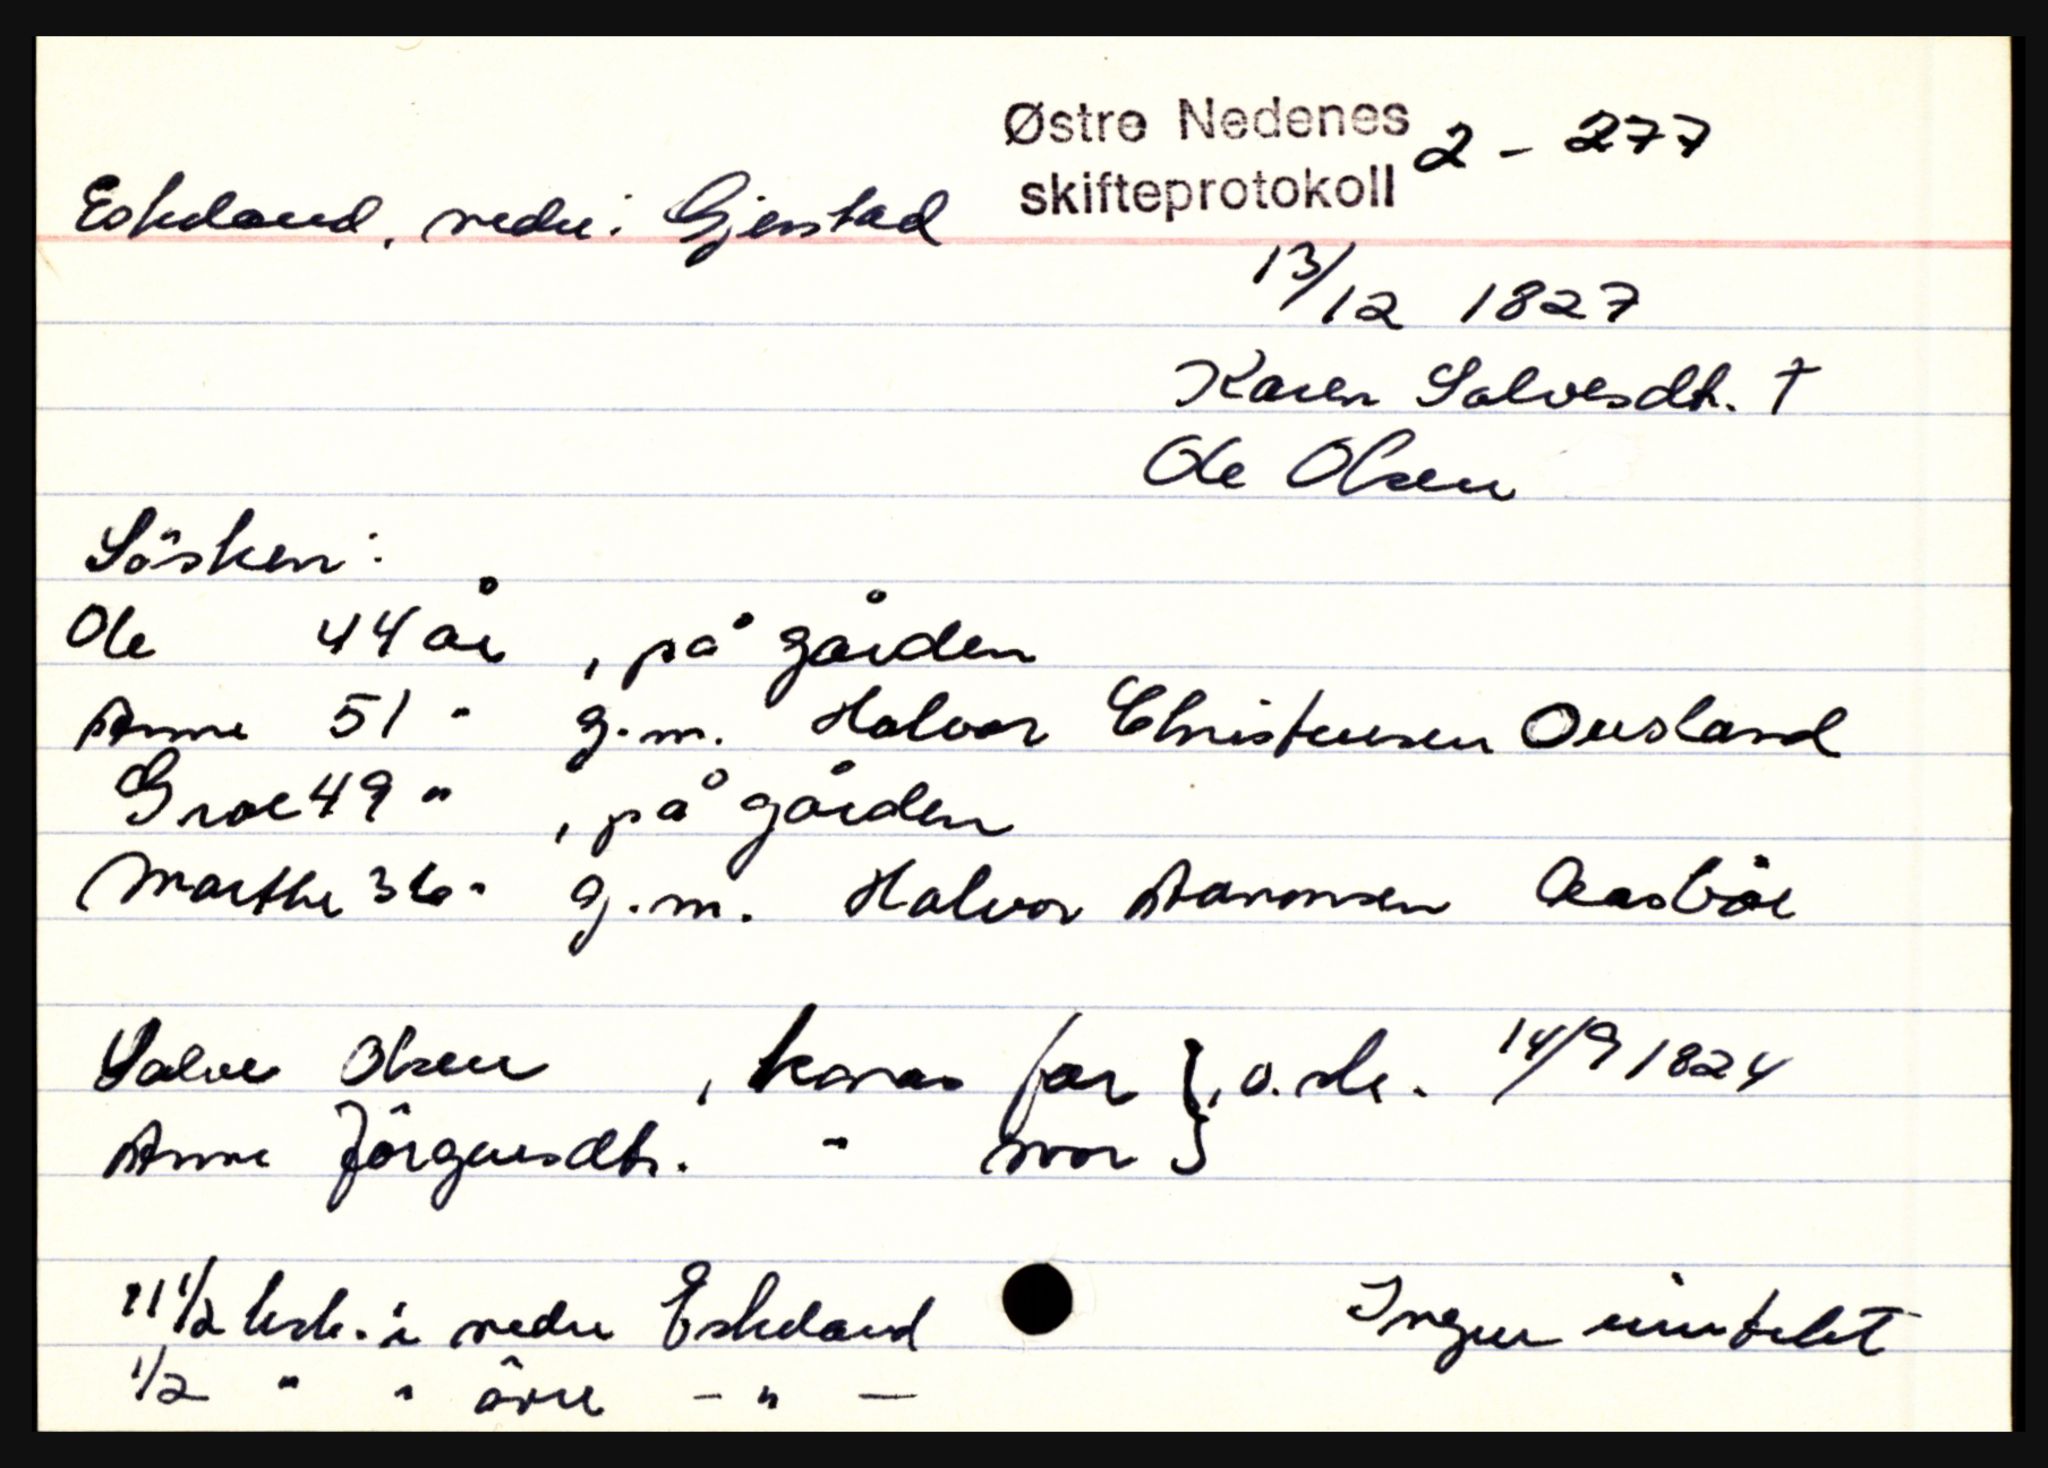 Østre Nedenes 2 - 277
skifteprotokoll
Eskeland, nedre i Gjerstad
13/12 1827
Karen Salvesdtr. †
Ole Olsen
Sösken:
Ole 44 år , på gården
Anne 51 " g.m. Halvor Christensen Ousland
Groe 49 " , på gården
Marthe 36 " g.m. Halvor Aanonsen Aasböe
Salve Olsen , karas far }, o. sk. 14/9 1824
Anne Jörgensdtr. " mor }
11 1/2 ksk. i nedre Eskeland
1/2 " " övre - " -
Ingen inntekt